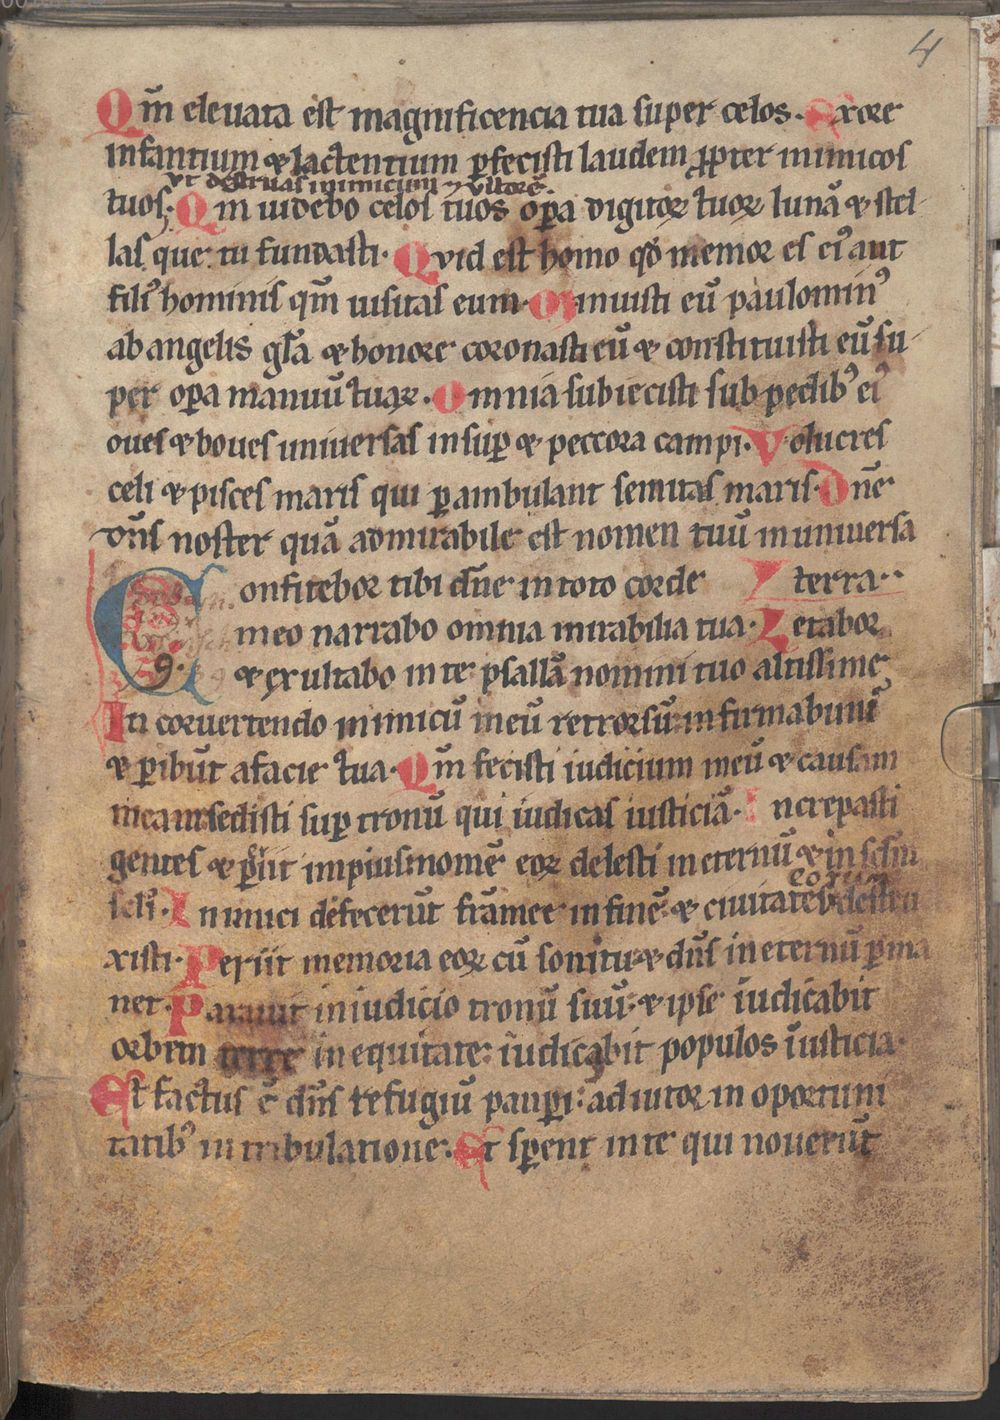 4
Qm̄ eleuata est magnificencia tua super celos. Exore
infantium ⁊ lactentium ꝑfecisti laudem ꝓpter inimicos
vt destruas inimicum ⁊ vltorē.
tuos; Qm̄ uidebo celos tuos oꝑa digitoꝝ tuoꝝ lunā ⁊ stel-
las que tu fundasti. Qvid est homo qd̄ memor es ei᾽ aut
fili᾽ hominis qm̄ uisitas eum. Minuisti eū paulomin᾽
ab angelis gl̄a ⁊ honore coronasti eū ⁊ constituisti eū su-
per oꝑa manuū tuaꝝ. Omnia subiecisti sub pedib᾽ ei᾽
oues ⁊ boues uniuersas insuꝑ ⁊ peccora campi. Volucres
celi ⁊ pisces maris qui ꝑambulant semitas maris. Dn̄e
dn̄s noster quā admirabile est nomen tuū in uniuersa
Confitebor tibi dn̄e in toto corde terra..
meo narrabo omnia mirabilia tua. Letabor
9.
⁊ exultabo in te psallā nomini tuo altissime
In conuertendo inimicū meū retrorsū: infirmabunt̄
⁊ ꝑibūt afacie tua. Qm̄ fecisti iudicium meū ⁊ causam
meam sedisti suꝑ tronū qui iudicas iusticiā. Increpasti
gentes ⁊ ꝑiit impius: nomē eoꝝ delesti in eternū ⁊ in sclm̄
eorum
scl̄i. Inimici defecerūt framee in finē ⁊ ciuitates destru
xisti. Periit memoria eoꝝ cū sonitu ⁊ dn̄s in eternū ꝑma
net. Parauit in iudicio tronū suū: ⁊ ipse iudicabit
orbem terre in equitate: iudicabit populos iusticia.
Et factus ē dn̄s refugiū pauꝑi: adiutor in oportuni
tatib᾽ in tribulatione. Et sꝑent in te qui nouerūt